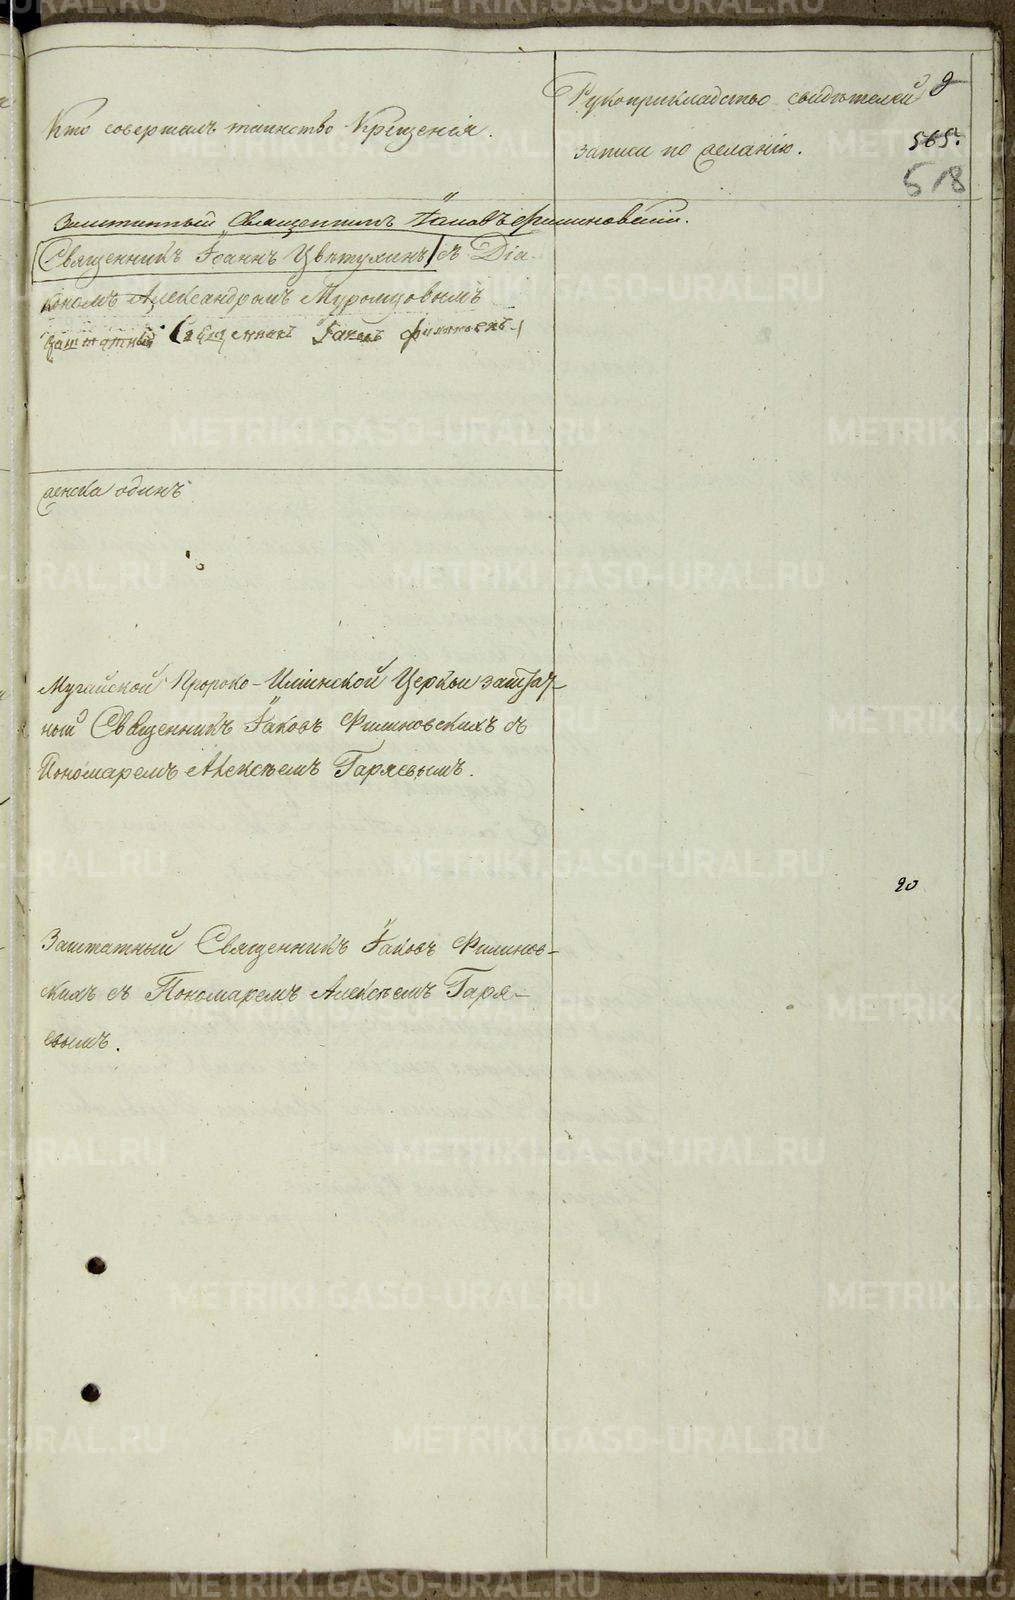 Рукоприкладство свидѣтелей
9
Кто совершалъ таинство Крещенія.
записи по желанію.
565.
518
Заштатный Священникъ Іаковъ Филиновскій.
Священникъ Іоаннъ Цвѣтухинъ съ Діа-
кономъ Александромъ Муромцовымъ
Заштатный Священникъ Іаковъ
женска одинъ
Мугайской Пророко-Илiинской Церкви заштат-
ной Священникъ Іаковъ Филиновскихъ съ
Пономаремъ Алексѣемъ Гаряевымъ.
20
Заштатный Священникъ Іаковъ Филинов-
скихъ съ Пономаремъ Алексѣемъ Гаря-
евымъ.
METRIKI.GASO-URAL.RU